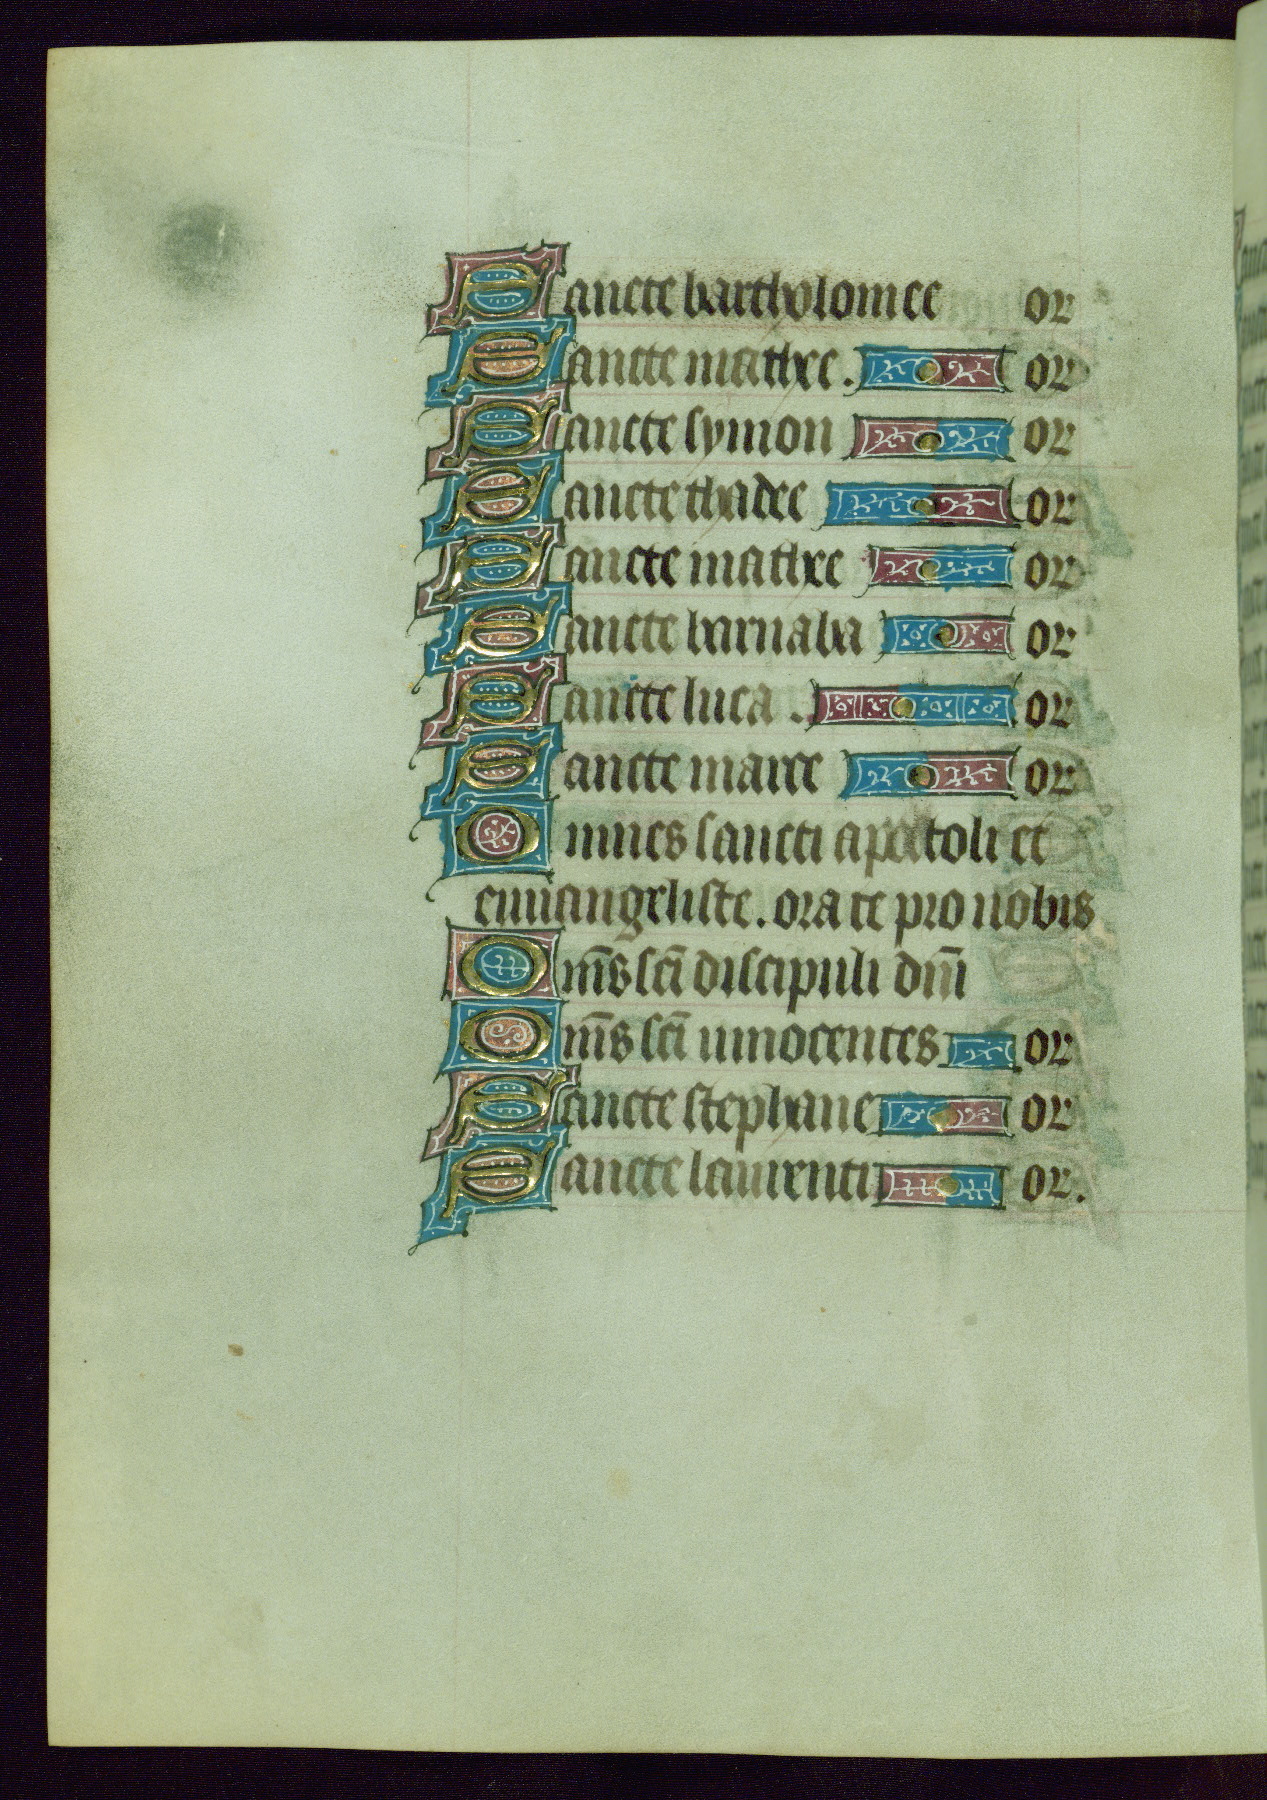 Sancte bartholomee or
Sancte mathee. or
Sancte symon or
Sancte thadee or
Sancte mathee or
Sancte barnaba or
Sancte luca . or
Sancte marce or
Omnes sancti apostoli et
euuangeliste. orate pro nobis
Om̄s sc̄i discipuli dm̄i
Om̄s sc̄i innocentes or
Sancte stephane or
Sancte laurenti or.